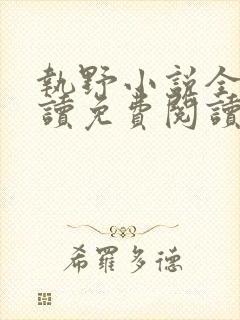 執野小說全
讀免費閱讀
希羅多德